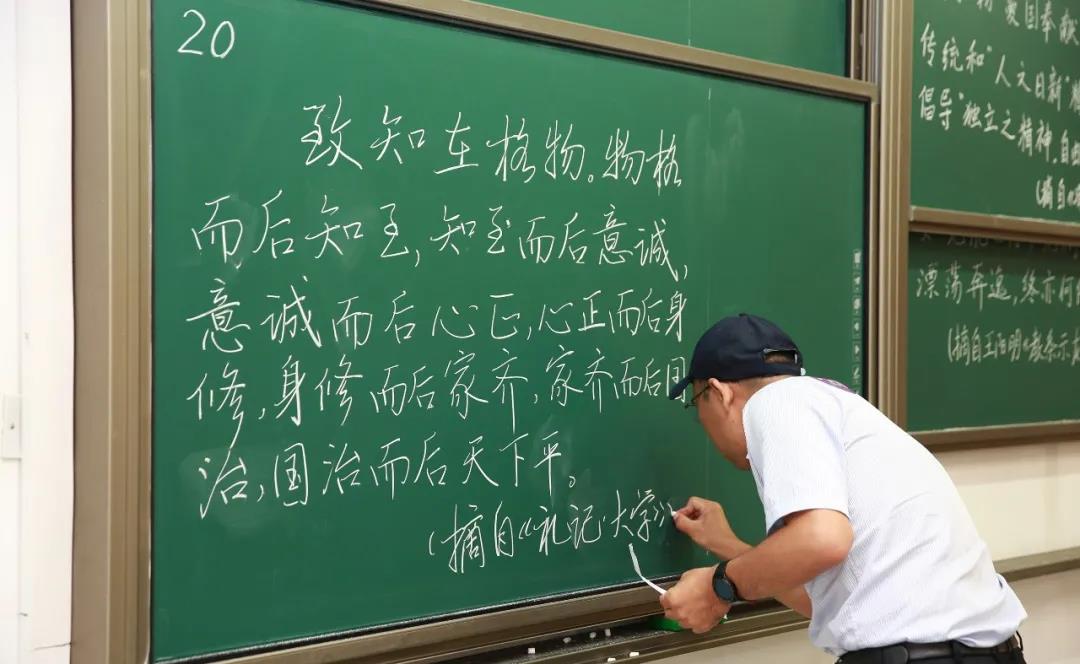 20
致知在格物。物格
而后知至,知至而后意诚,
意诚而后心正,心正而后身
修,身修而后家齐,家齐而后国
治,国治而后天下平。
(摘自《礼记·大学》
爱国奉献
传统和"人文日新"
倡导"独立之精神,自由
(摘自
漂荡奔逸,终亦何
(摘自王阳明《教条示龙